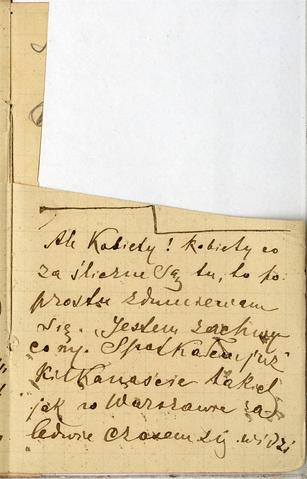 Ale Kobiety! kobiety co
za śliczne są tu, to po
prostu zdumiewam
się. Jestem zachwy
cony. Spotkałem już
Kilkanaście takich
jak w Warszawie za
ledwie czasem się widzi